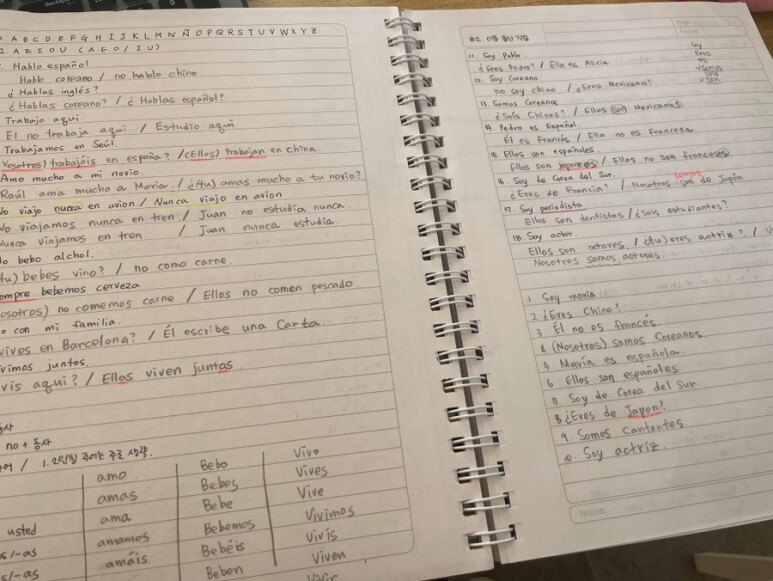 A B C D E F G H I J K L M N Ñ O P Q R S T U V W X Y Z
2. A E I O U (A E O / I U)
Hablo español
Hablo coreano / no hablo chino
¿Hablas inglés?
¿Hablas coreano? / ¿Hablas español?
Trabajo aquí
Él no trabaja aquí / Estudio aquí
Trabajamos en Seúl.
trabajáis en españa? / (Ellos) trabajan en china
Amo mucho a mi novio.
Raúl ama mucho a María. / ¿(tu) amas mucho a tu novio?
No viajo nunca en avion / Nunca viajo en avion
No viajamos nunca en tren / Juan no estudia nunca.
Nunca viajamos en tren / Juan nunca estudia.
bebo alchol.
(tu) bebes vino? / no como carne.
bebemos cerveza
no comemos carne / Ellos no comen pescado
con mi familia.
vives en Barcelona? / Él escribe una Carta.
juntos.
aquí? / Ellas viven juntas
no + 동사
/ 1.2인칭 주어는 주로 생략.
amo Bebo Vivo
amas Bebes Vives
ama Bebe Vive
usted amamos Bebemos Vivimos
s/-as amáis Bebéis Vivís
s/-as Beben Viven
11. Soy Pablo
¿Eres Pedro? / Ella es Alicia
12. Soy Coreano
no soy chino / ¿Eres Mexicana?
13. Somos Coreanos
¿Sois Chinos? / Ellos son Mexicanos
14. Pedro es Español.
Él es Francés / Ella no es Francesa
15. Ellos son españoles
Ellos son japoneses / Ellos no son franceses
16. Soy de Corea del Sur.
¿Eres de Francia? / Nosotros son de Japón
somos
17. Soy periodista
Ellos son dentistas / ¿Sois estudiantes?
18. Soy actor.
Ellos son actores. / ¿(tu) eres actriz? /
Nosotros somos actores
Soy
Eres
es
Somos
Sois
Son
1 Soy maria
2 ¿Eres Chino?
3 Él no es francés.
4 (Nosotros) Somos Coreanos
5 María es española.
6 Ellos son españoles
7 Soy de Corea del Sur.
8 ¿Eres de Japon?
9 Somos Cantantes
10 Soy actriz.
Notes: